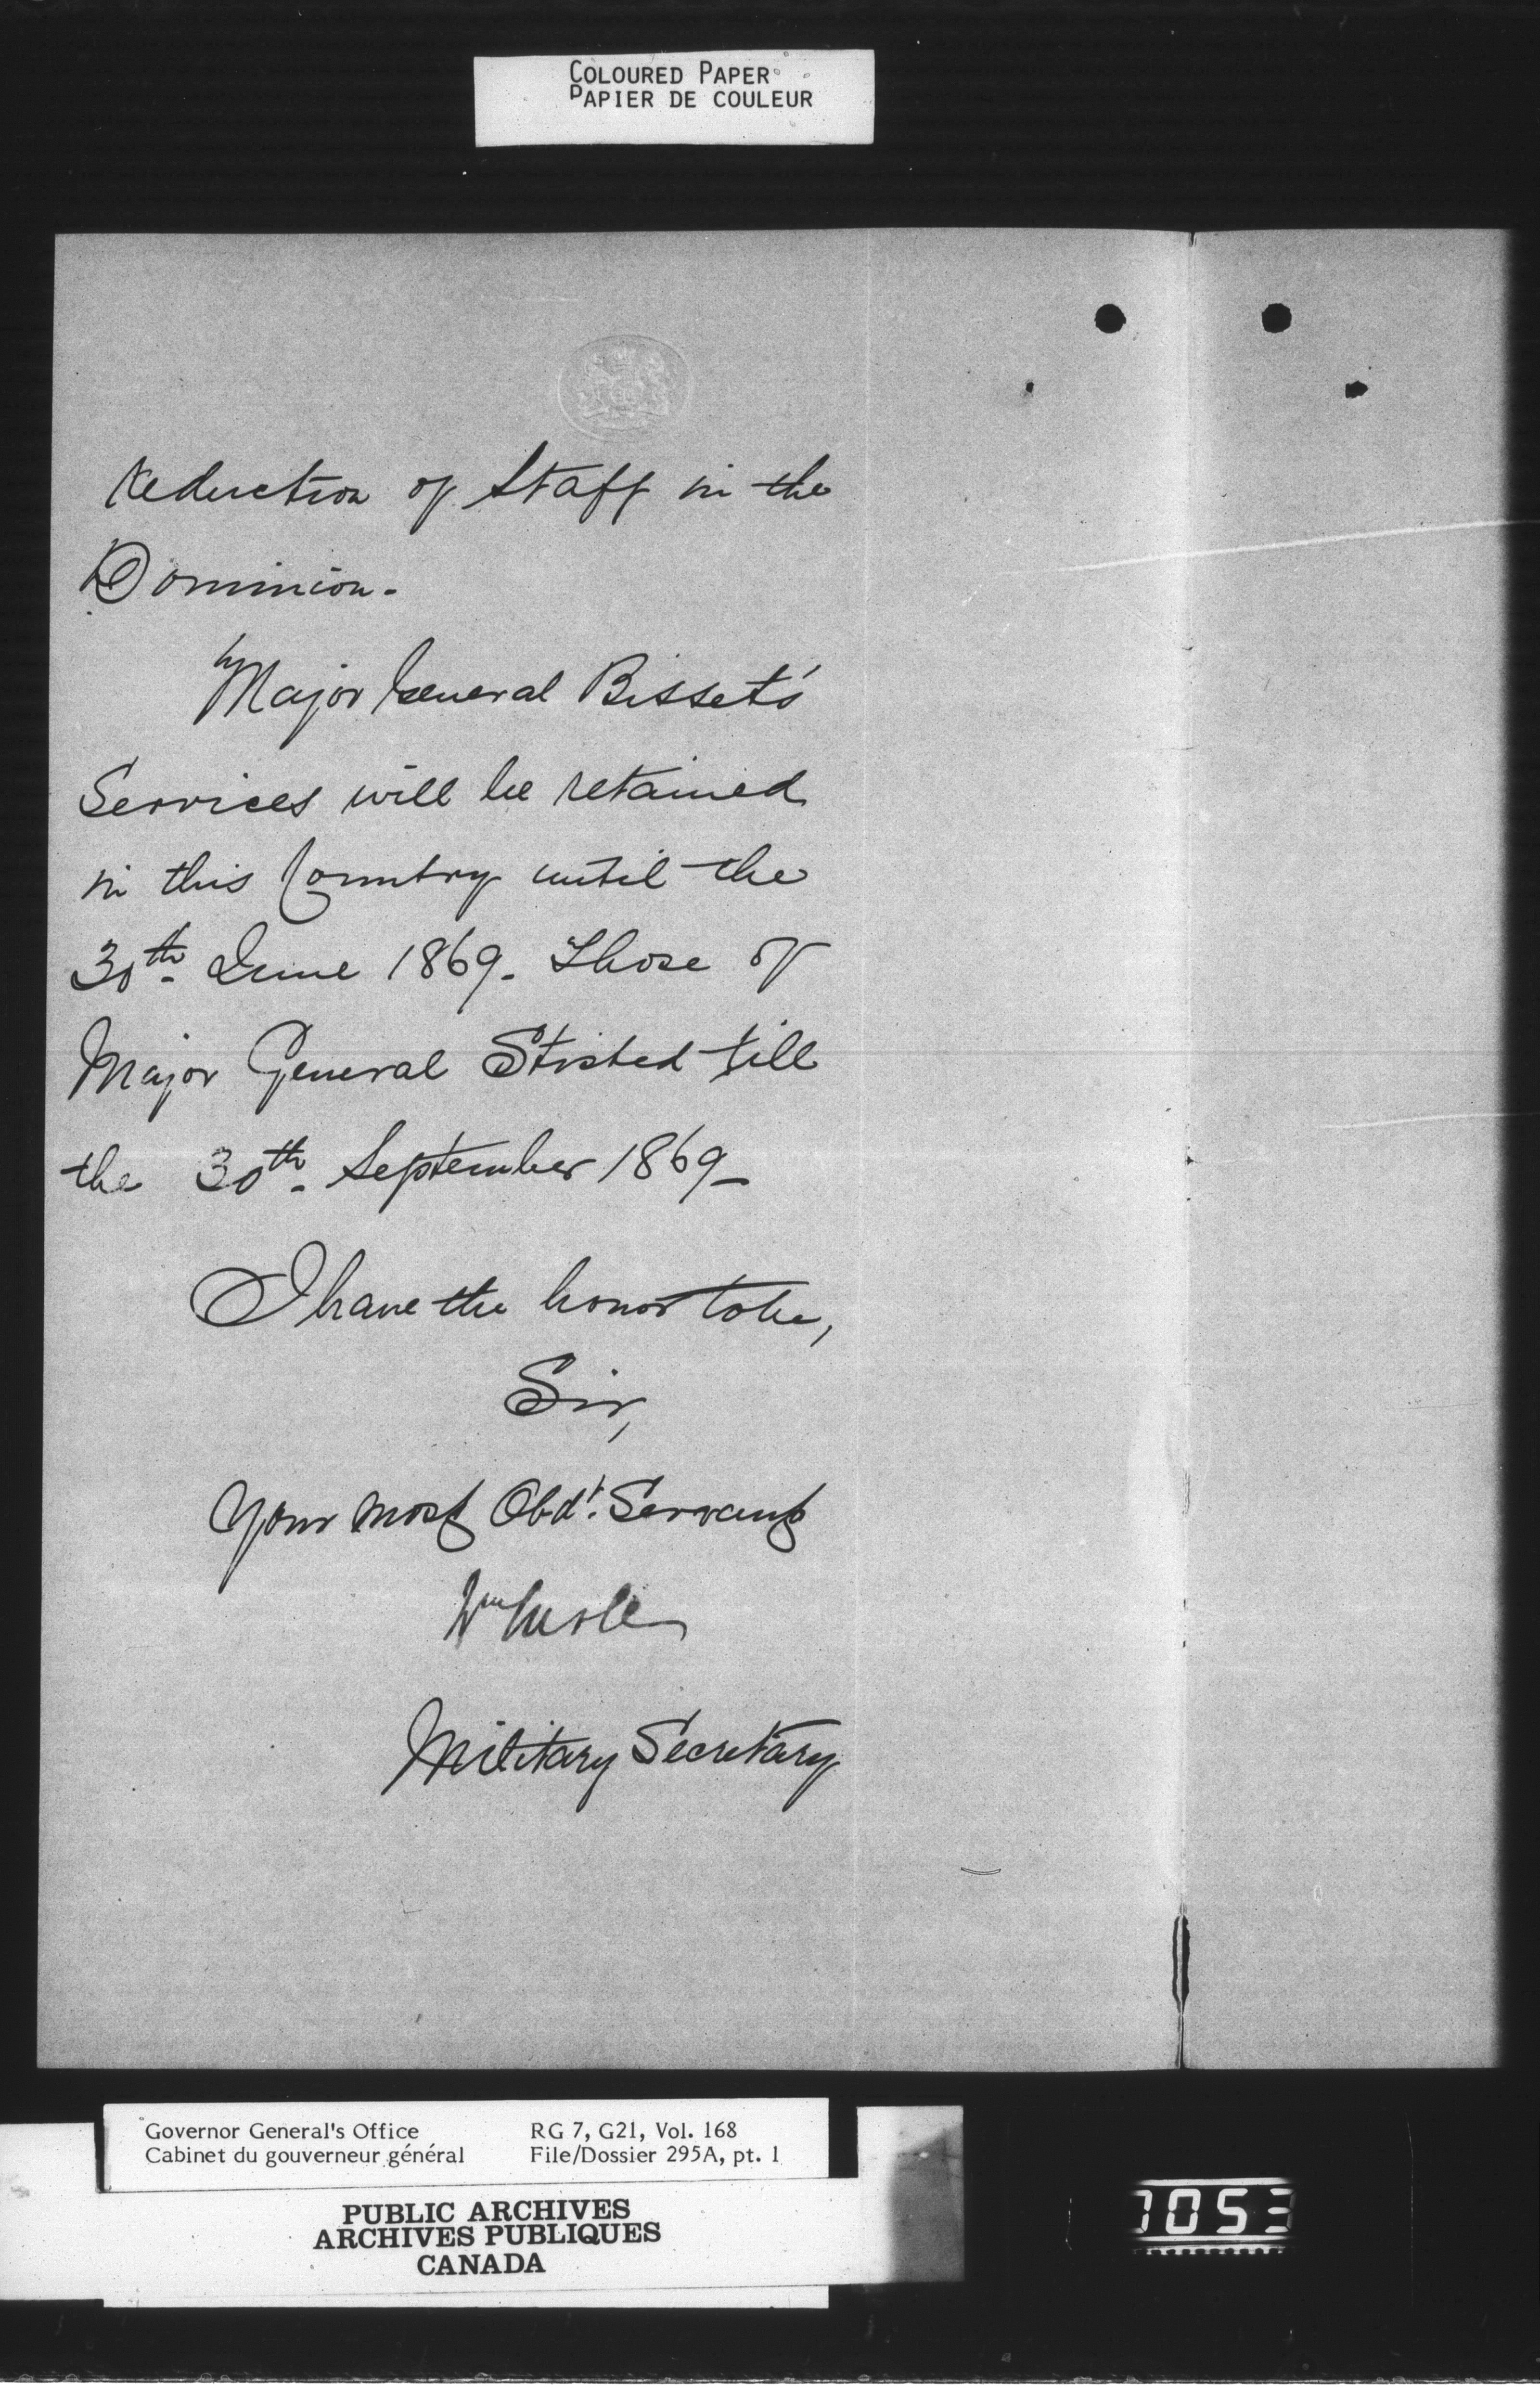 COLOURED PAPER
PAPIER DE COULEUR
reduction of Staff in the
Dominion.
Major General Bisset's
Services will be retained
in this Country until the
30th June 1869. Those of
Major General Stisted till
the 30th September 1869_
I have the honor to be,
Sir,
Your most Obdt. Servant
Wm
Military Secretary
Governor General's Office RG 7, G21, Vol. 168
Cabinet du gouverneur général File/Dossier 295A, pt. 1
PUBLIC ARCHIVES
ARCHIVES PUBLIQUES
CANADA
1053